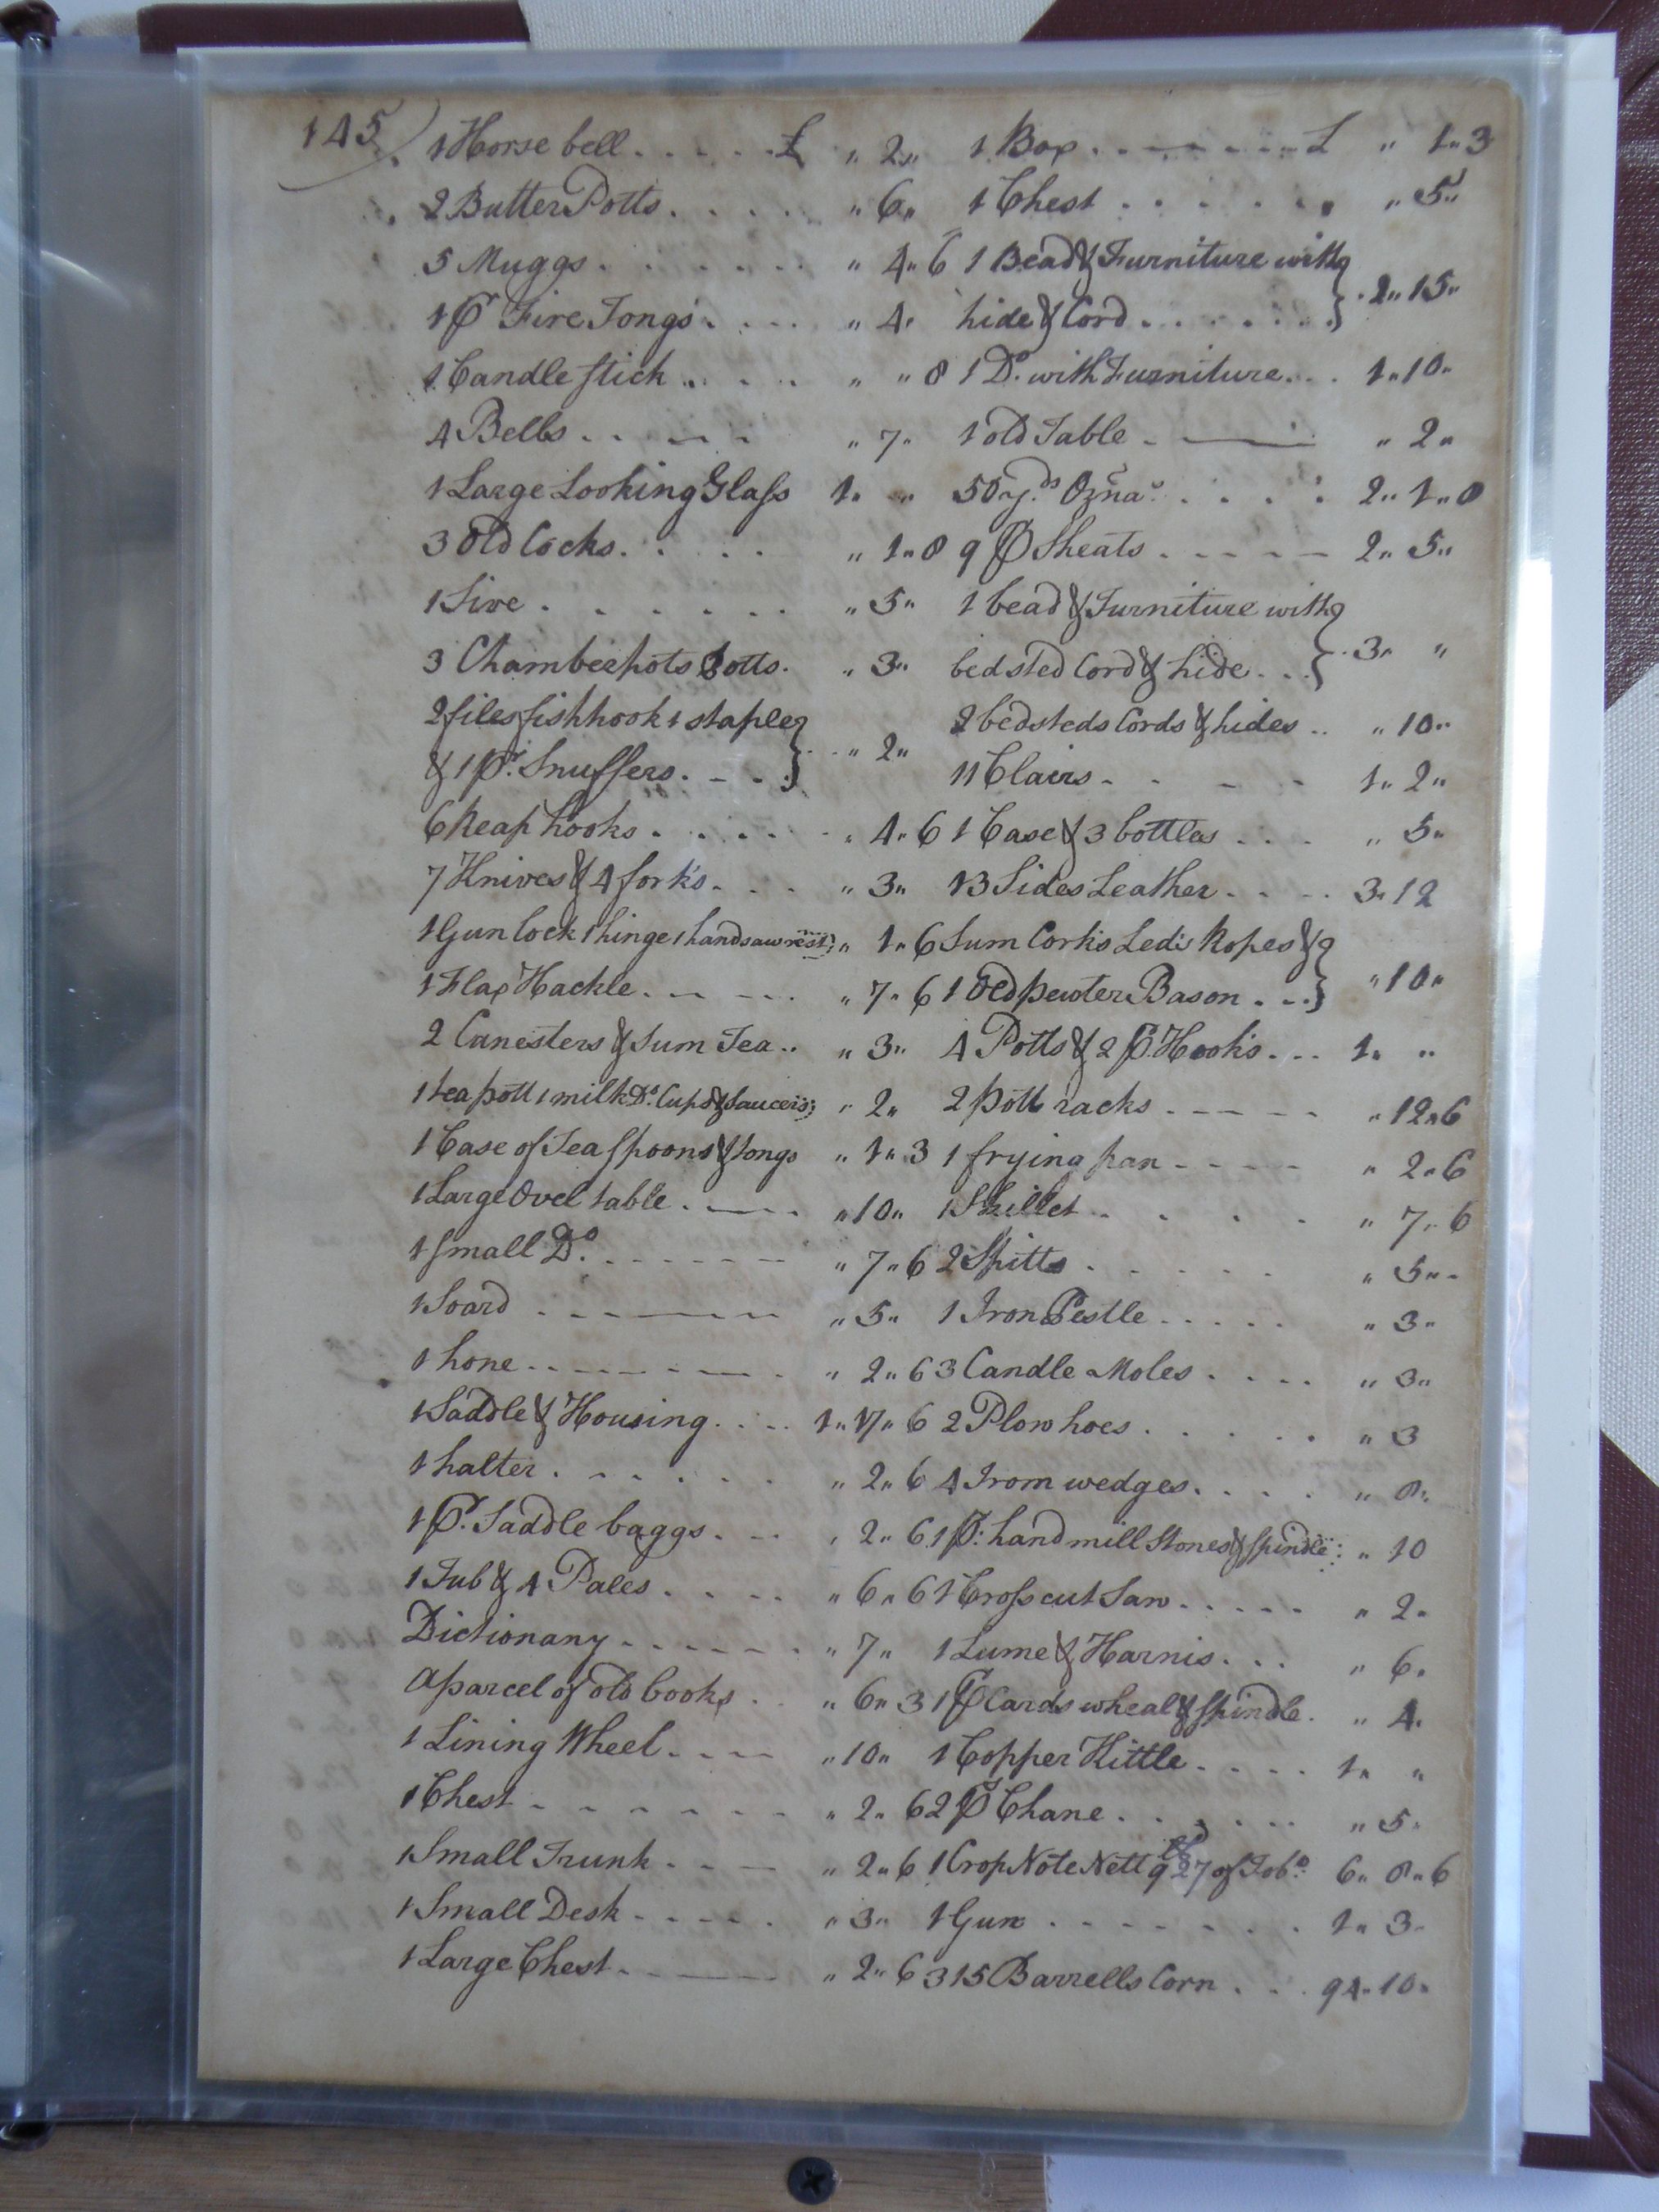 145
1 Horse bell . . . . . £ „ 2 „
2 Butter Potts . . . . „ 6 „
5 Muggs . . . . . . . „ 4 „ 6
1 P Fire Tongs . . . . „ 4 „
1 Candle stick . . . . „ „ 8
4 Bells . . . . . „ 7 „
1 Large Looking Glass 1 „ „
3 Old Locks . . . . „ 1 „ 8
1 Sive . . . . . . . „ 5 „
3 Chamberpots Potts . „ 3 „
2 files fishhook 1 staple
& 1 Pr. Snuffers . - - . } „ 2 „
6 Reap hooks . . . . . „ 4 „ 6
7 Knives & 4 fork's . . . „ 3 „
1 Gun lock 1 hinge 1 handsaw rest „ 1 „ 6
1 Flax Hackle . - - - - . „ 7 „ 6
2 Canesters & Sum Tea . . „ 3 „
1 tea pott 1 milk Do. Cups & Saucers „ 2 „
1 Case of Tea spoons & tongs „ 1 „ 3
1 Large Ovel table . - - . „ 10 „
1 small Do. - - - - - - „ 7 „ 6
1 Soard . - - - - - „ 5 „
1 hone . . - - - - - . „ 2 „ 6
1 Saddle & Housing . . . . 1 „ 17 „ 6
1 halter . . . . . . „ 2 „ 6
1 Pr. Saddle baggs . - - „ 2 „ 6
1 Tub & 4 Pales . . . . „ 6 „ 6
Dictionany . - - - - - . „ 7 „
A parcel of old books . . „ 6 „ 3
1 Lining Wheel . - - - „ 10 „
1 Chest - - - - - - - „ 2 „ 6
1 Small Trunk . - - - „ 2 „ 6
1 Small Desk - - - - . „ 3 „
1 Large Chest . - - - „ 2 „ 6
1 Box . - - - - - - £ „ 1 „ 3
1 Chest . . . . . . „ 5 „
1 Bead & Furniture with
hide & Cord . . . . . . . } 2 „ 15 „
1 Do. with Furniture . . . 1 „ 10 „
1 old Table - - - - „ 2 „
50 yds Ozna . . . . 2 „ 1 „ 8
9 P Sheats . - - - - 2 „ 5 „
1 bead & Furniture with
bedsted Cord & hide . . . } 3 „ „
2 bedsteds Cords & hides . . „ 10 „
11 Clairs - - - - 1 „ 2 „
1 Case & 3 bottles . . . „ 5 „
13 Sides Leather . - - . 3 „ 12
Sum Cork's Led's Ropes &
1 Old pewter Bason . - . } „ 10 „
4 Potts & 2 P. Hook's . . . 1 „ „
2 pott racks - - - - - „ 12 „ 6
1 frying pan - - - - „ 2 „ 6
1 Skillet . . . . . „ 7 „ 6
2 Spitts . . . . . . „ 5 „ -
1 Iron Pestle . . . . . „ 3 „
3 Candle Moles . . . . „ 3 „
2 Plow hoes . . . . . . „ 3
4 Irom wedges . . . . „ 8 „
1 P: hand mill Stones & spindle : „ 10
1 Cross cut Saw . . . . . „ 2 „
1 Lume & Harnis . . . „ 6 „
1 P Cards wheal & spindle . „ 4 „
1 Copper Kittle . . . . 1 „ „
2 P Chane . . . . . . „ 5 „
1 Crop Note Nett 927 of Tobo. 6 „ 8 „ 6
1 Gun . - - - - - . 1 „ 3 -
315 Barrells Corn . . . 94 „ 10 „